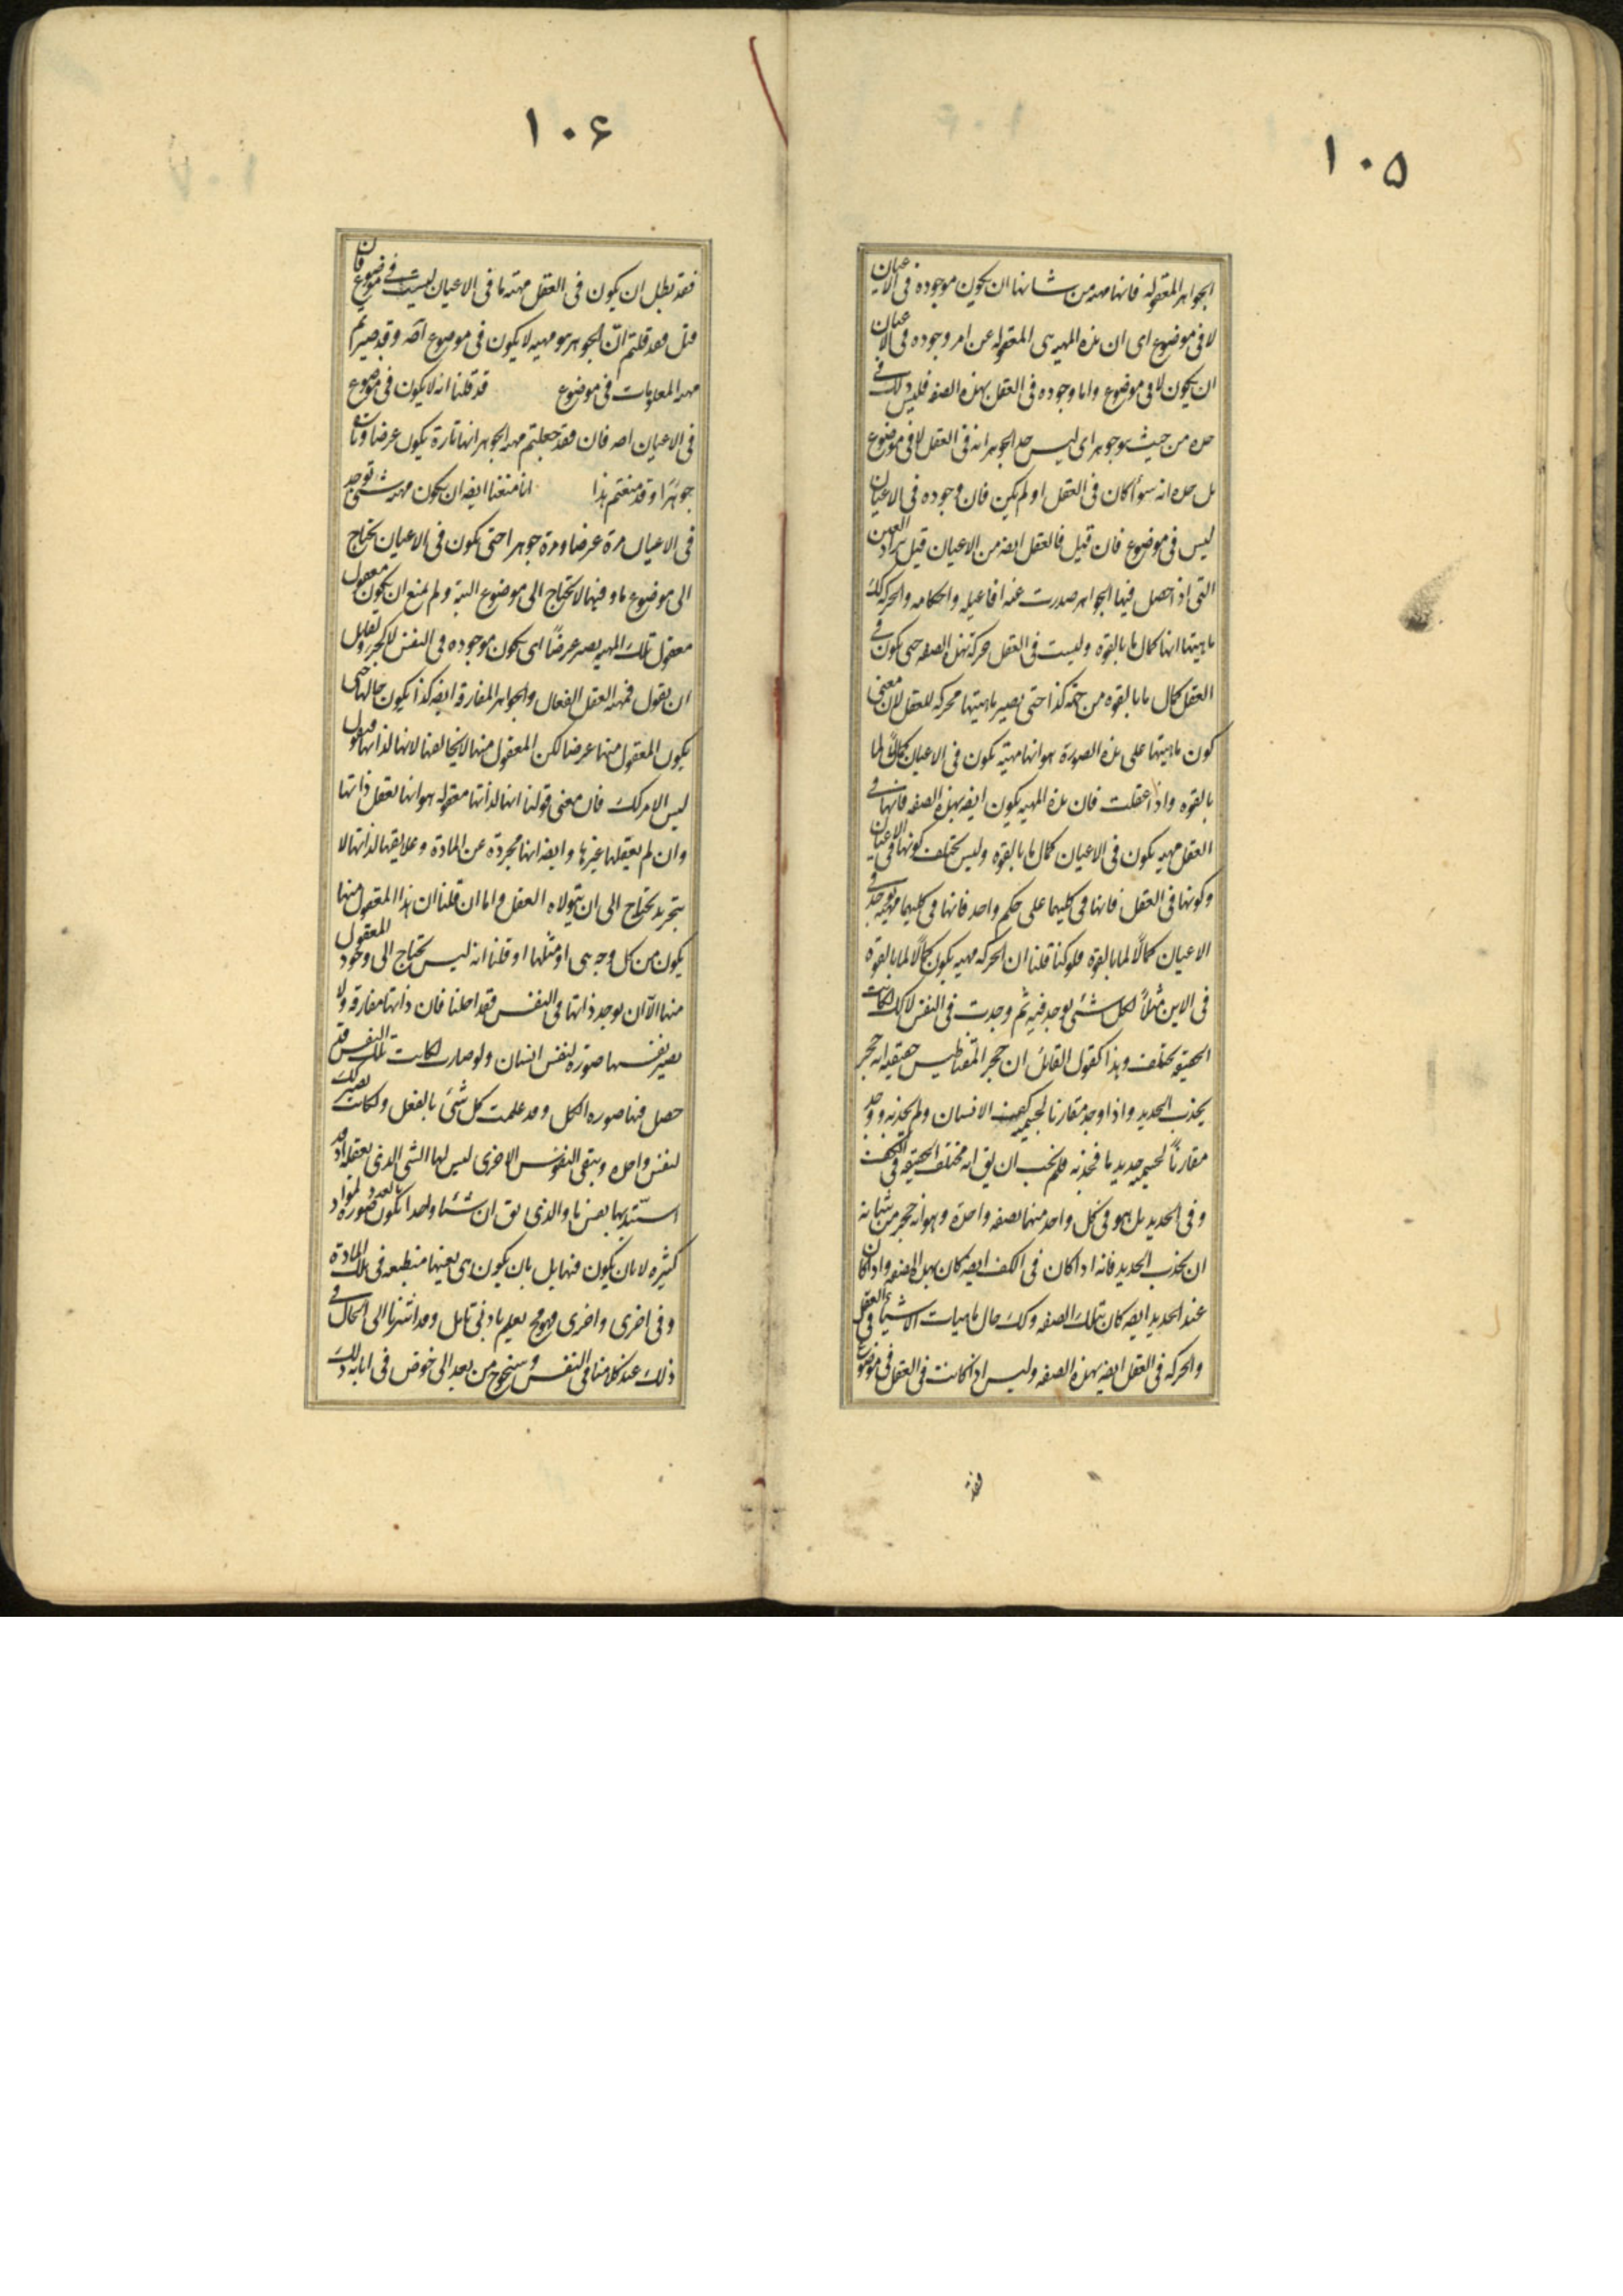 ١٠۵
الجواهر المعقوله فانها مهيه من شانها ان يكون موجوده فى الاعيان
لا فى موضوع اى ان هذه المهيه هى المعقوله عن امر وجوده فى الاعيان
ان يكون لا فى موضوع واما وجوده فى العقل بهذه الصفه فليس ذلك فى
حده من حيث هو جوهر اى ليس حد الجوهر انه فى العقل لا فى موضوع
بل حده انه سوأ كان فى العقل او لم يكن فان وجوده فى الاعيان
ليس فى موضوع فان قيل فالعقل ايضه من الاعيان قيل يراد العين
التى اذا حصل فيها الجواهر صدرت عنه افاعيله واحكامه والحركه كك
ماهيتها انها كمال ما بالقوه وليست فى العقل حركة بهذه الصفه حتى يكون فى
العقل كمال ما بالقوه من جهة كذا حتى تصير ماهيتها محركه للعقل لان معنى
كون ماهيتها على هذه الصورة هو انها مهيّة يكون فى الاعيان كمالاً لما
بالقوه واذا عقلت فان هذه المهيه يكون ايضه بهذه الصفه فانها فى
العقل مهيه يكون فى الاعيان كمال ما بالقوه وليس يختلف كونها فى الاعيان
وكونها فى العقل فانها فى كليهما على حكم واحد فانها فى كليهما مهيه يوجد فى
الاعيان كمالاً لما بالقوه فلو كنا قلنا ان الحركه مهيه يكون كمالاً لما بالقوه
فى الاين مثلاً لكل شئى يوجد فيه ثم وجدت فى النفس لا كك لكانت
الحقيقه يختلف وهذا كقول القائل ان حجر المقناطيس حقيقته انه حجر
يجذب الحديد واذا وجد مقارنا لجسميه كف الانسان ولم يجذبه ووجد
مقارناً لجسميه حديد ما فجذبه فلم يجب ان يق انه مختلف الحقيقه فى الكف
وفى الحديد بل هو فى كل واحد منهما بصفه واحدة وهو انه حجر من شانه
ان يجذب الحديد فانه اذا كان فى الكف ايضه كان بهذه الصفه واذا كان
عند الحديد ايضه كان بتلك الصفه وكك حال ماهيات الاشيأ فى العقل
والحركه فى العقل ايضه بهذه الصفه وليس اذا كانت فى العقل فى موضوع
فقد
١٠۶
فقد بطل ان يكون فى العقل مهيّه ما فى الاعيان ليست فى موضوع فان
قيل فقد قلتم انّ الجوهر هو مهيه لا يكون فى موضوع اصه وقد صيرتم
مهيه المعلومات فى موضوع قد قلنا انه لا يكون فى موضوع
فى الاعيان اصه فان فقد جعلتم مهيه الجوهر انها تارة يكون عرضا وتارة
جوهرًا وقد منعتم هذا انا منعنا ايضه ان يكون مهيه شئى توجد
فى الاعيان مرة عرضا ومرة جوهرا حتى يكون فى الاعيان يحتاج
الى موضوع ما وفيها لا يحتاج الى موضوع البتة ولم نمنع ان يكون معقول
معقول تلك المهيه يصير عرضاً اى يكون موجوده فى النفس لا كجزء ولقايل
ان يقول فمهية العقل الفعال والجواهر المفارقه ايضه كذا يكون حالها حتى
يكون المعقول منها عرضا لكن المعقول منها لا يخالفها لانها لذاتها معقول
ليس الامر كك فان معنى قولنا انها لذاتها معقوله هو انها تعقل ذاتها
وان لم يعقلها غيرها وايضه انها مجرده عن المادة وعلايقها لذاتها لا
بتجريد يحتاج الى ان يتولاه العقل واما ان قلنا ان هذا المعقول منها
يكون من كل وجه هى او مثلها او قلنا انه ليس يحتاج الى وجود المعقول
منها الّا ان يوجد ذاتها فى النفس فقد احلنا فان ذاتها مفارقه ولا
يصير نفسها صورة لنفس انسان ولو صارت لكانت تلك النفس قد
حصل فيها صوره الكل وقد علمت كل شئى بالفعل ولكانت تصير كك
لنفس واحده ويبقى النفوس الاخرى ليس لها الشئ الذى يعقله اذ قد
استبد بها نفس ما والذى يق ان شئا واحدا بالعدد يكون صوره لمواد
كثيره لا بان يكون فيها بل بان يكون هى بعينها منطبعه فى تلك المادة
وفى اخرى واخرى فهو مح يعلم بادنى تامل وقد اشرنا الى الحال فى
ذلك عند كلامنا فى النفس وسنخرج من بعد الى خوض فى ابانه ذلك